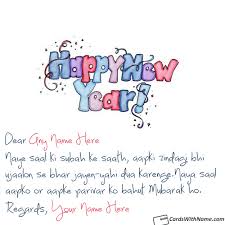 Happy New
Year!
Dear Any Name Here
Naye saal ki subah ke saath, aapki zindagi bhi
ujaalon se bhar jayen-yahi dua karenge.Naya saal
aapko or aapke parivar ko bahut Mubarak ho.
Regards, Your Name Here
CardsWithName.com